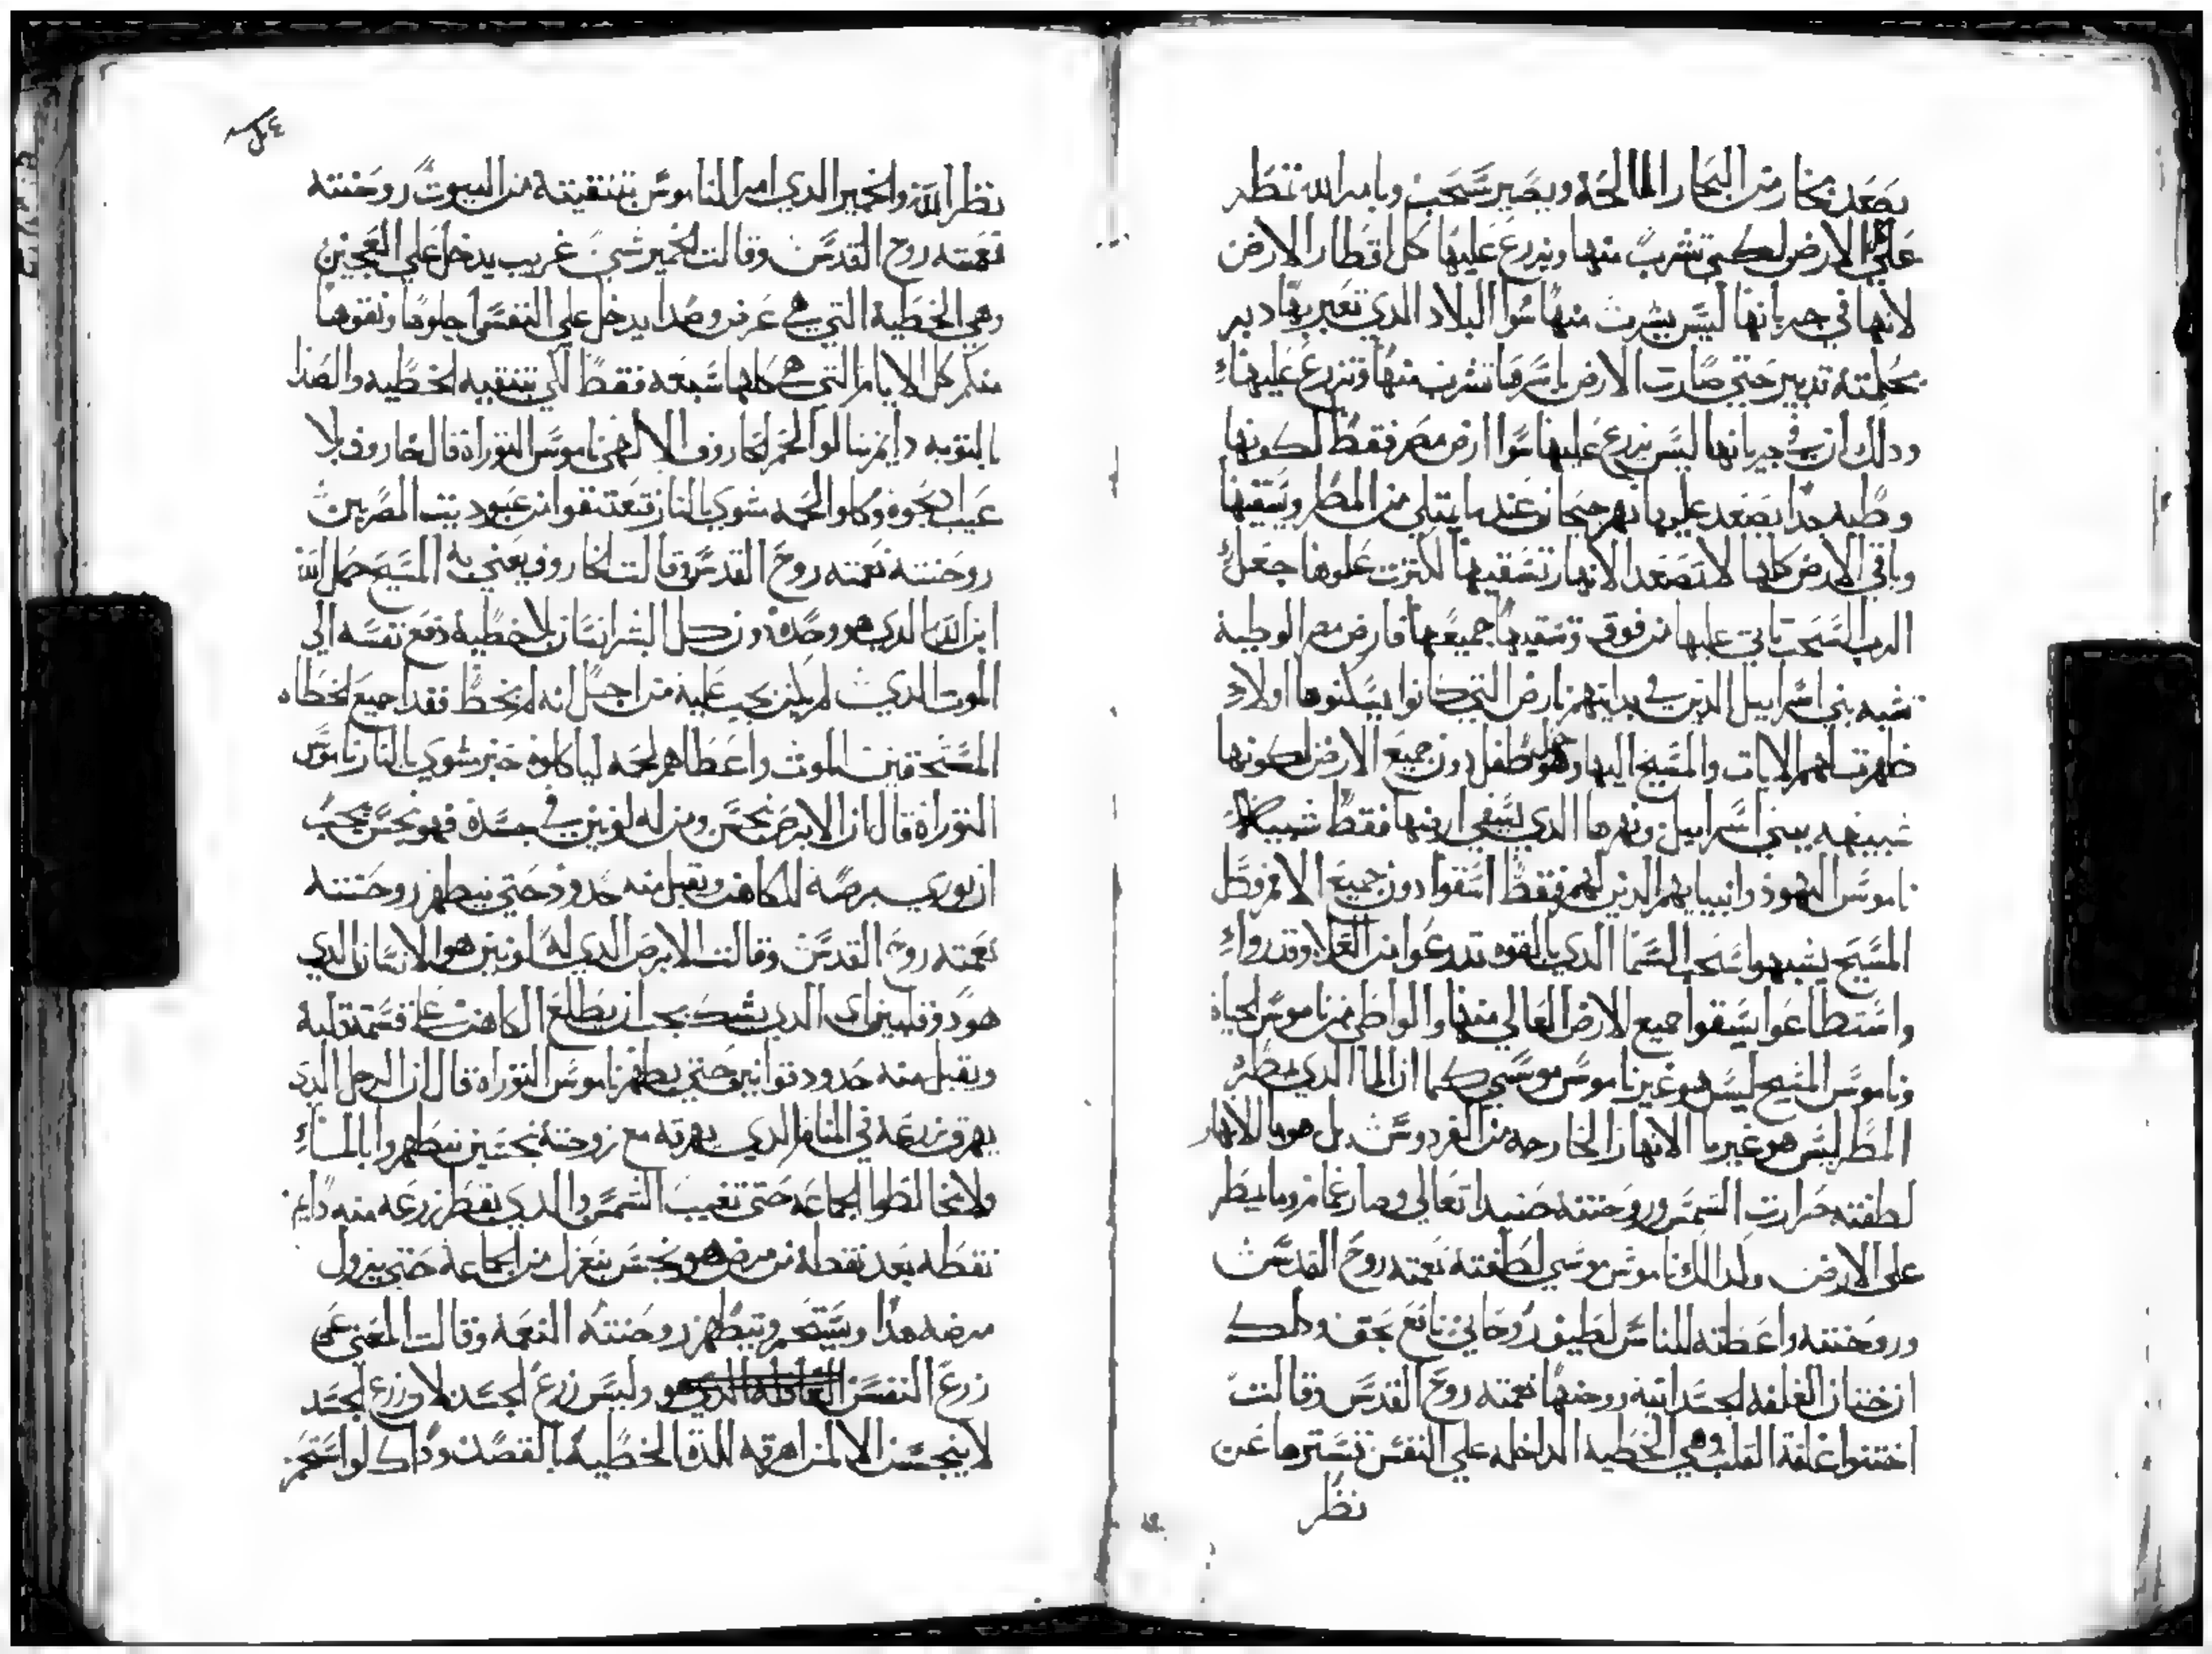 يصعد بخار من البحار المالحه ويصير سحب وبامر الله تمطر
علي الارض لكي تشرب منها ويزرع عليها كل اقطار الارض
لانها في جريانها ليس يشرب منها سوا البلاد الذي تعبر بها دبر
بحكمته تدبير حتي صارت الارض باسرها تشرب منها وتزرع عليها
ودلك ان في جريانها ليس يزرع عليها سوا ارض مصر فقط لكونها
وطيه جدا يصعد عليها نهر جيحان عندما يمتلي من المطر ويسقيها
وباقي الارض كلها لا تصعد الانهار تسقيها لكترت علوها جعل
الرب السحب تاتي عليها من فوق وتسقيها جميعها فارض مصر الوطية
تشبه بني اسراييل الدين في بدايتهم بارض التي كانوا يسكنوها اولا
ظهرت لهم الايات والمسيح اليها وهو طفل دون جميع الارض لكونها
شبيهه ببني اسراييل ونهرها الدي يسقي ارضها فقط شبيه
ناموس اليهود وانبيايهم الدين لهم فقط استقوا دون جميع الامم ورسل
المسيح يشبهوا سحب السما الدي بالقوه تدرعوا من العلا وقدروا
واستطاعوا يسقوا جميع الارض العالي منها والواطي من ناموس الحياه
وناموس المسيح ليس هو غير ناموس موسي كما ان الما الدي يمطره
المطر ليس هو غير ما الانهار الخارجه من الفردوس بل هو ما الانهار
لطفته حرارت الشمس وروحنته صنيد تعالي وصار غمام وما يمطر
علي الارض ولدالك ناموس موسي لطفته نعمته روح القدس
وروحنته واعطته للناس لطيف روحاني نافع بحق ودلك
ان ختان الغلفه الجسدانيه روحنها نعمته روح القدس وقالت
اختنوا غلفة القلب وهي الخطيه الداخله علي النفس تسترها عن
نظر
نظر الله والخمير الدي امر الناموس بتنقيته من البيوت روحنته
نعمته روح القدس وقالت الخمير شي غريب يدخل علي العجين
وهي الخطية التي هي عرض وصدا يدخل علي النفس اجلوها ونقوها
منكم كل الايام التي هي كلها سبعه فقط الي تنقيه الخطيه والصدا
بالتوبه دايم تنالوا الحمل الخاروف الالهي ناموس التوراة قال خاروف بلا
عيب ادبحوه وكلوا لحمه مشوي بالنار تعتقوا من عبوديت المصريين
روحنته نعمته روح القدس وقالت الخاروف يعني به المسيح حمل الله
ابن الله الدي هو وحده دون كل البشر انسان بلا خطية دفع نفسه الي
الموت الدي لم يكن يجب عليه من اجل انه لم يخطي فقدا جميع الخطاه
المستحقين الموت واعطاهم لحمه لياكلوه خبز مشوي بالنار ناموس
التوراة قال ان الابرص نجس ومن له لونين في جسده فهو نجس يجب
ان يوري برصه للكاهن ويقبل منه حدود حتي يتطهر روحنته
نعمته روح القدس وقالت الابرص الدي له لونين هو الانسان الدي
هو دو قلبين اي الدي يشك يجب ان يطلع الكاهن علي قسمة قلبه
ويقبل منه حدود قوانين حتي يطهر ناموس التوراة قال ان الرجل الدي
يهرق زرعه في المنام الدي يهرقه مع زوجته نجسين يتطهروا بالماء
ولا يخالطوا الجماعه حتي تغيب الشمس والدي يقطر زرعه منه دايم
نقطه بعد نقطه من مرض هو نجس ينعزل من الجماعة حتي يزول
مرضه هدا ويستحم ويتطهر روحنته النعمة وقالت المعني علي
زرع النفس العاقله الدي هو وليس زرع الجسد لان زرع الجسد
لا ينجس الا لمن اهرقه للدة الخطية بالقصد وداك لو استحم